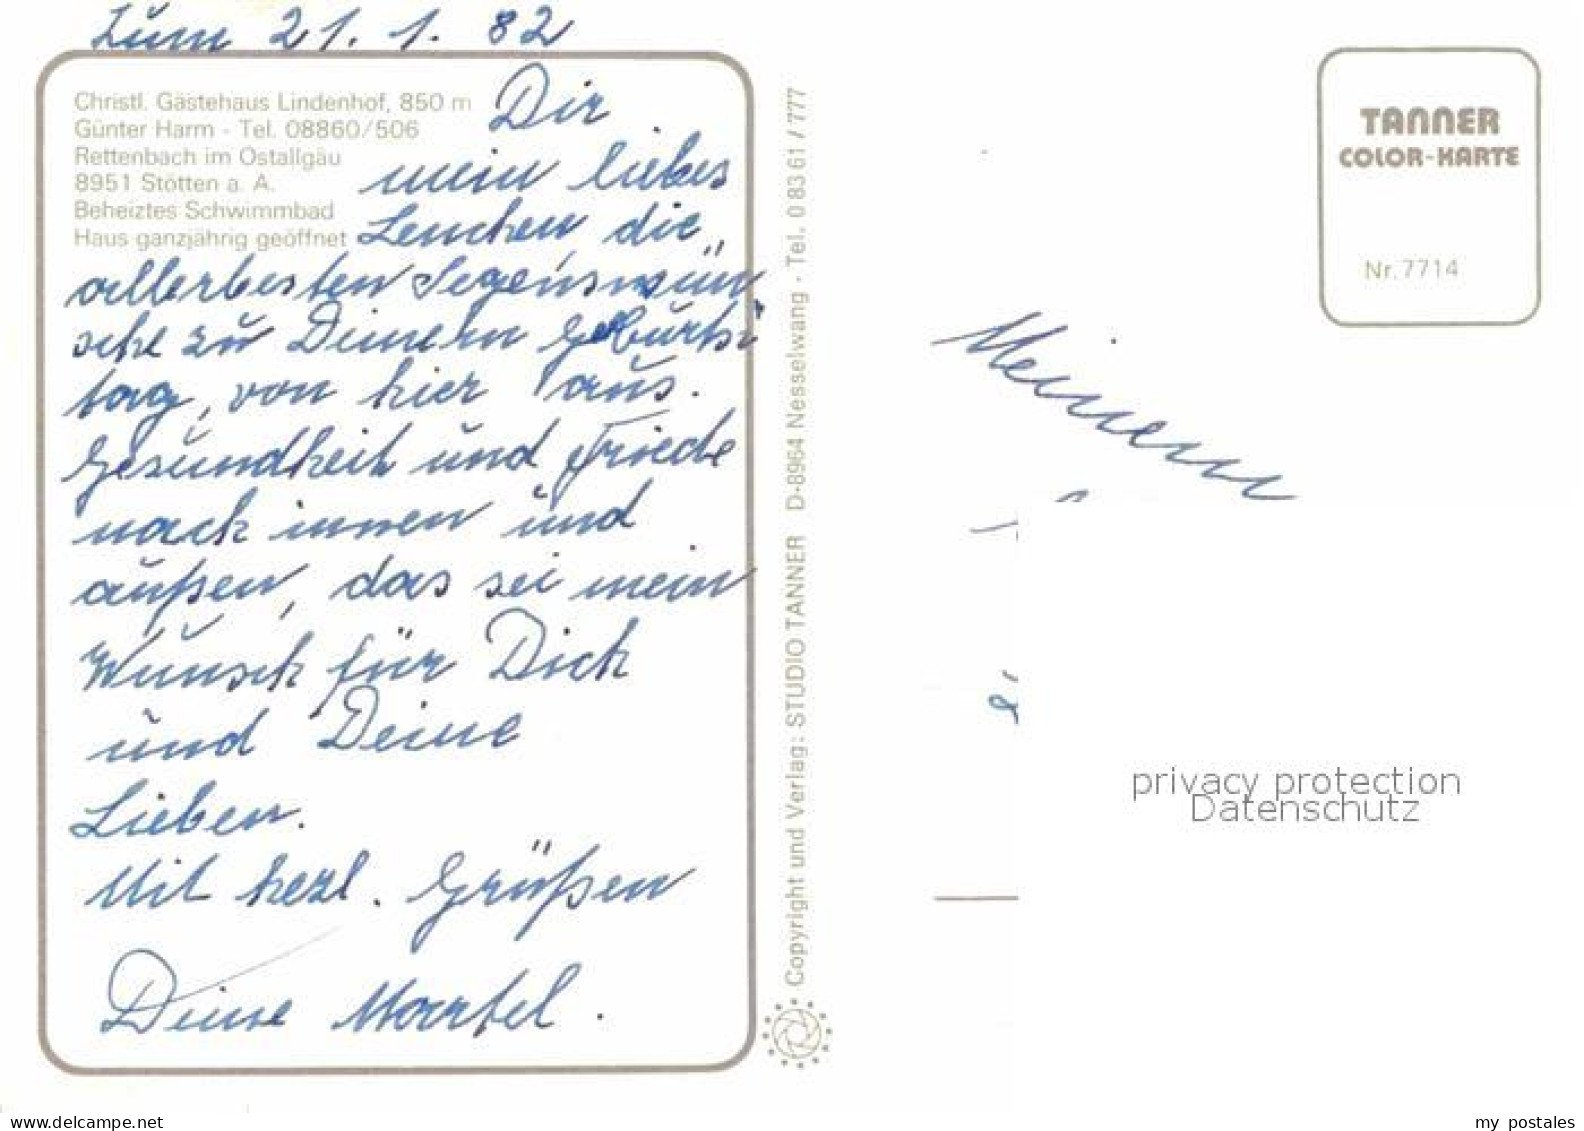 Zum 21. 1. 82
Christl. Gästehaus Lindenhof, 850 m
Günter Harm - Tel. 08860/506
Rettenbach im Ostallgäu
8951 Stötten a. A.
Beheiztes Schwimmbad
Haus ganzjährig geöffnet
Dir
mein liebes
Lenchen die
allerbesten Segenswün
sche zu Deinem Geburts
tag, von hier aus.
Gesundheit und Friede
nach innen und
außen, das sei mein
Wunsch für Dich
und Deine
Lieben.
Mit herzl. Grüßen
Deine Martel.
Copyright und Verlag: STUDIO TANNER D-8964 Nesselwang - Tel. 0 83 61 / 777
TANNER
COLOR-KARTE
Nr. 7714
privacy protection
Datenschutz
www.delcampe.net
my postales